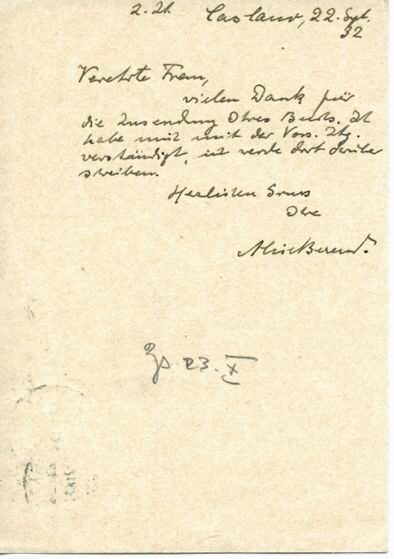 Caslano, 22. Spt.
32
Verehrte Frau,
vielen Dank für
die Zusendung Ihres Buchs. Ich
habe mich mit der Voss. Ztg.
verständigt, ich werde dort darüber
schreiben.
Herzlichen Gruss
Ihre
Alice Berend.
23. X